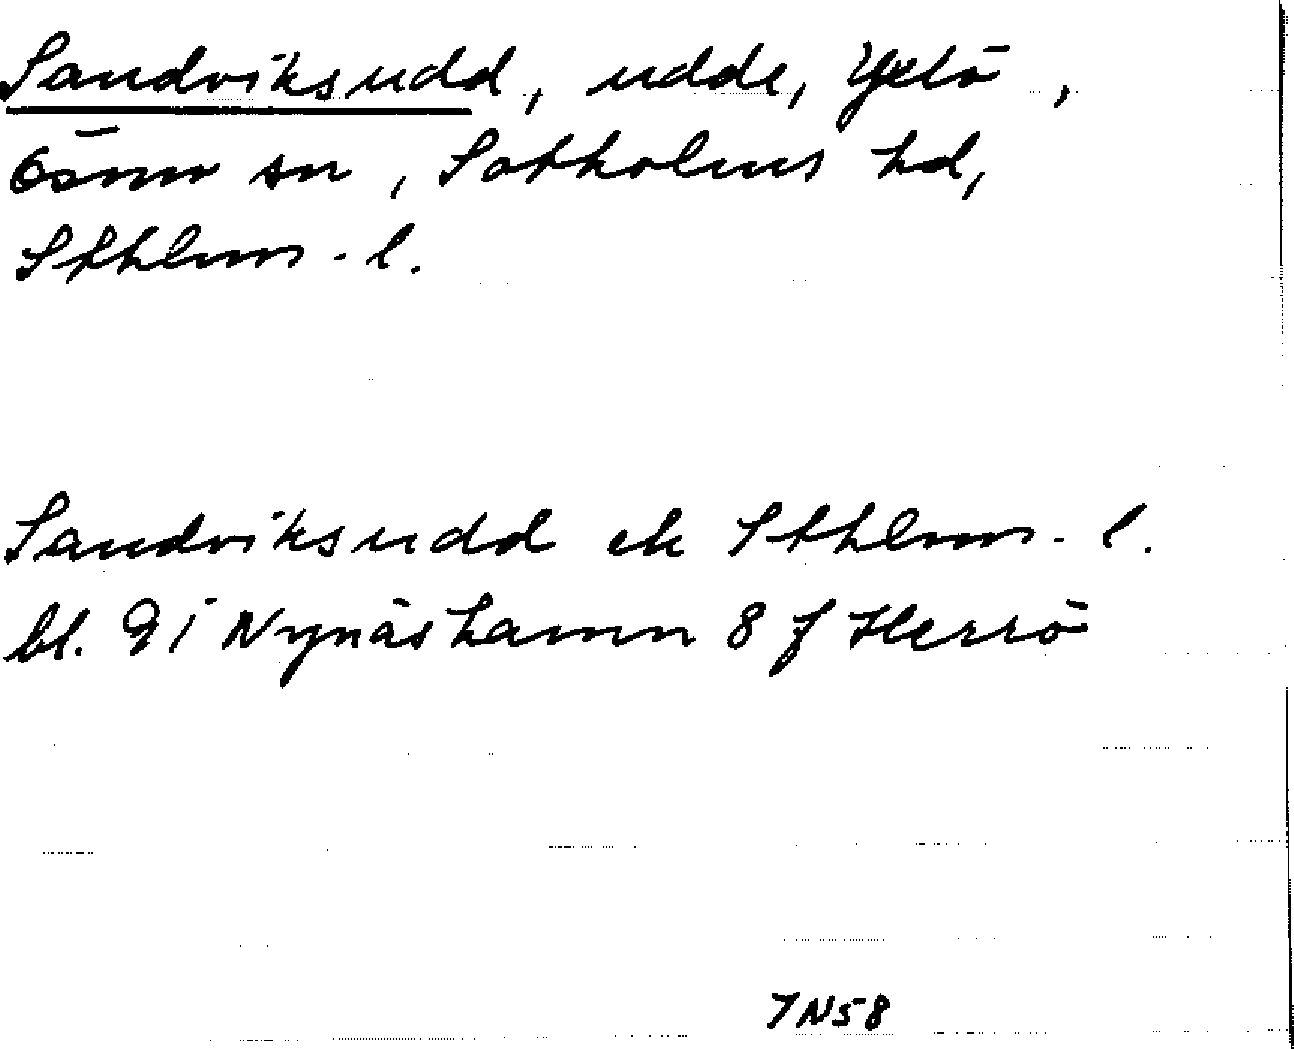 Sandviksudd, udde, Yxlö,
Ösmo sn, Sotholms hd,
Sthlms-l.
Sandviksudd ek Sthlms-l.
bl. 9 i Nynäshamn 8 f Herrö
7N58